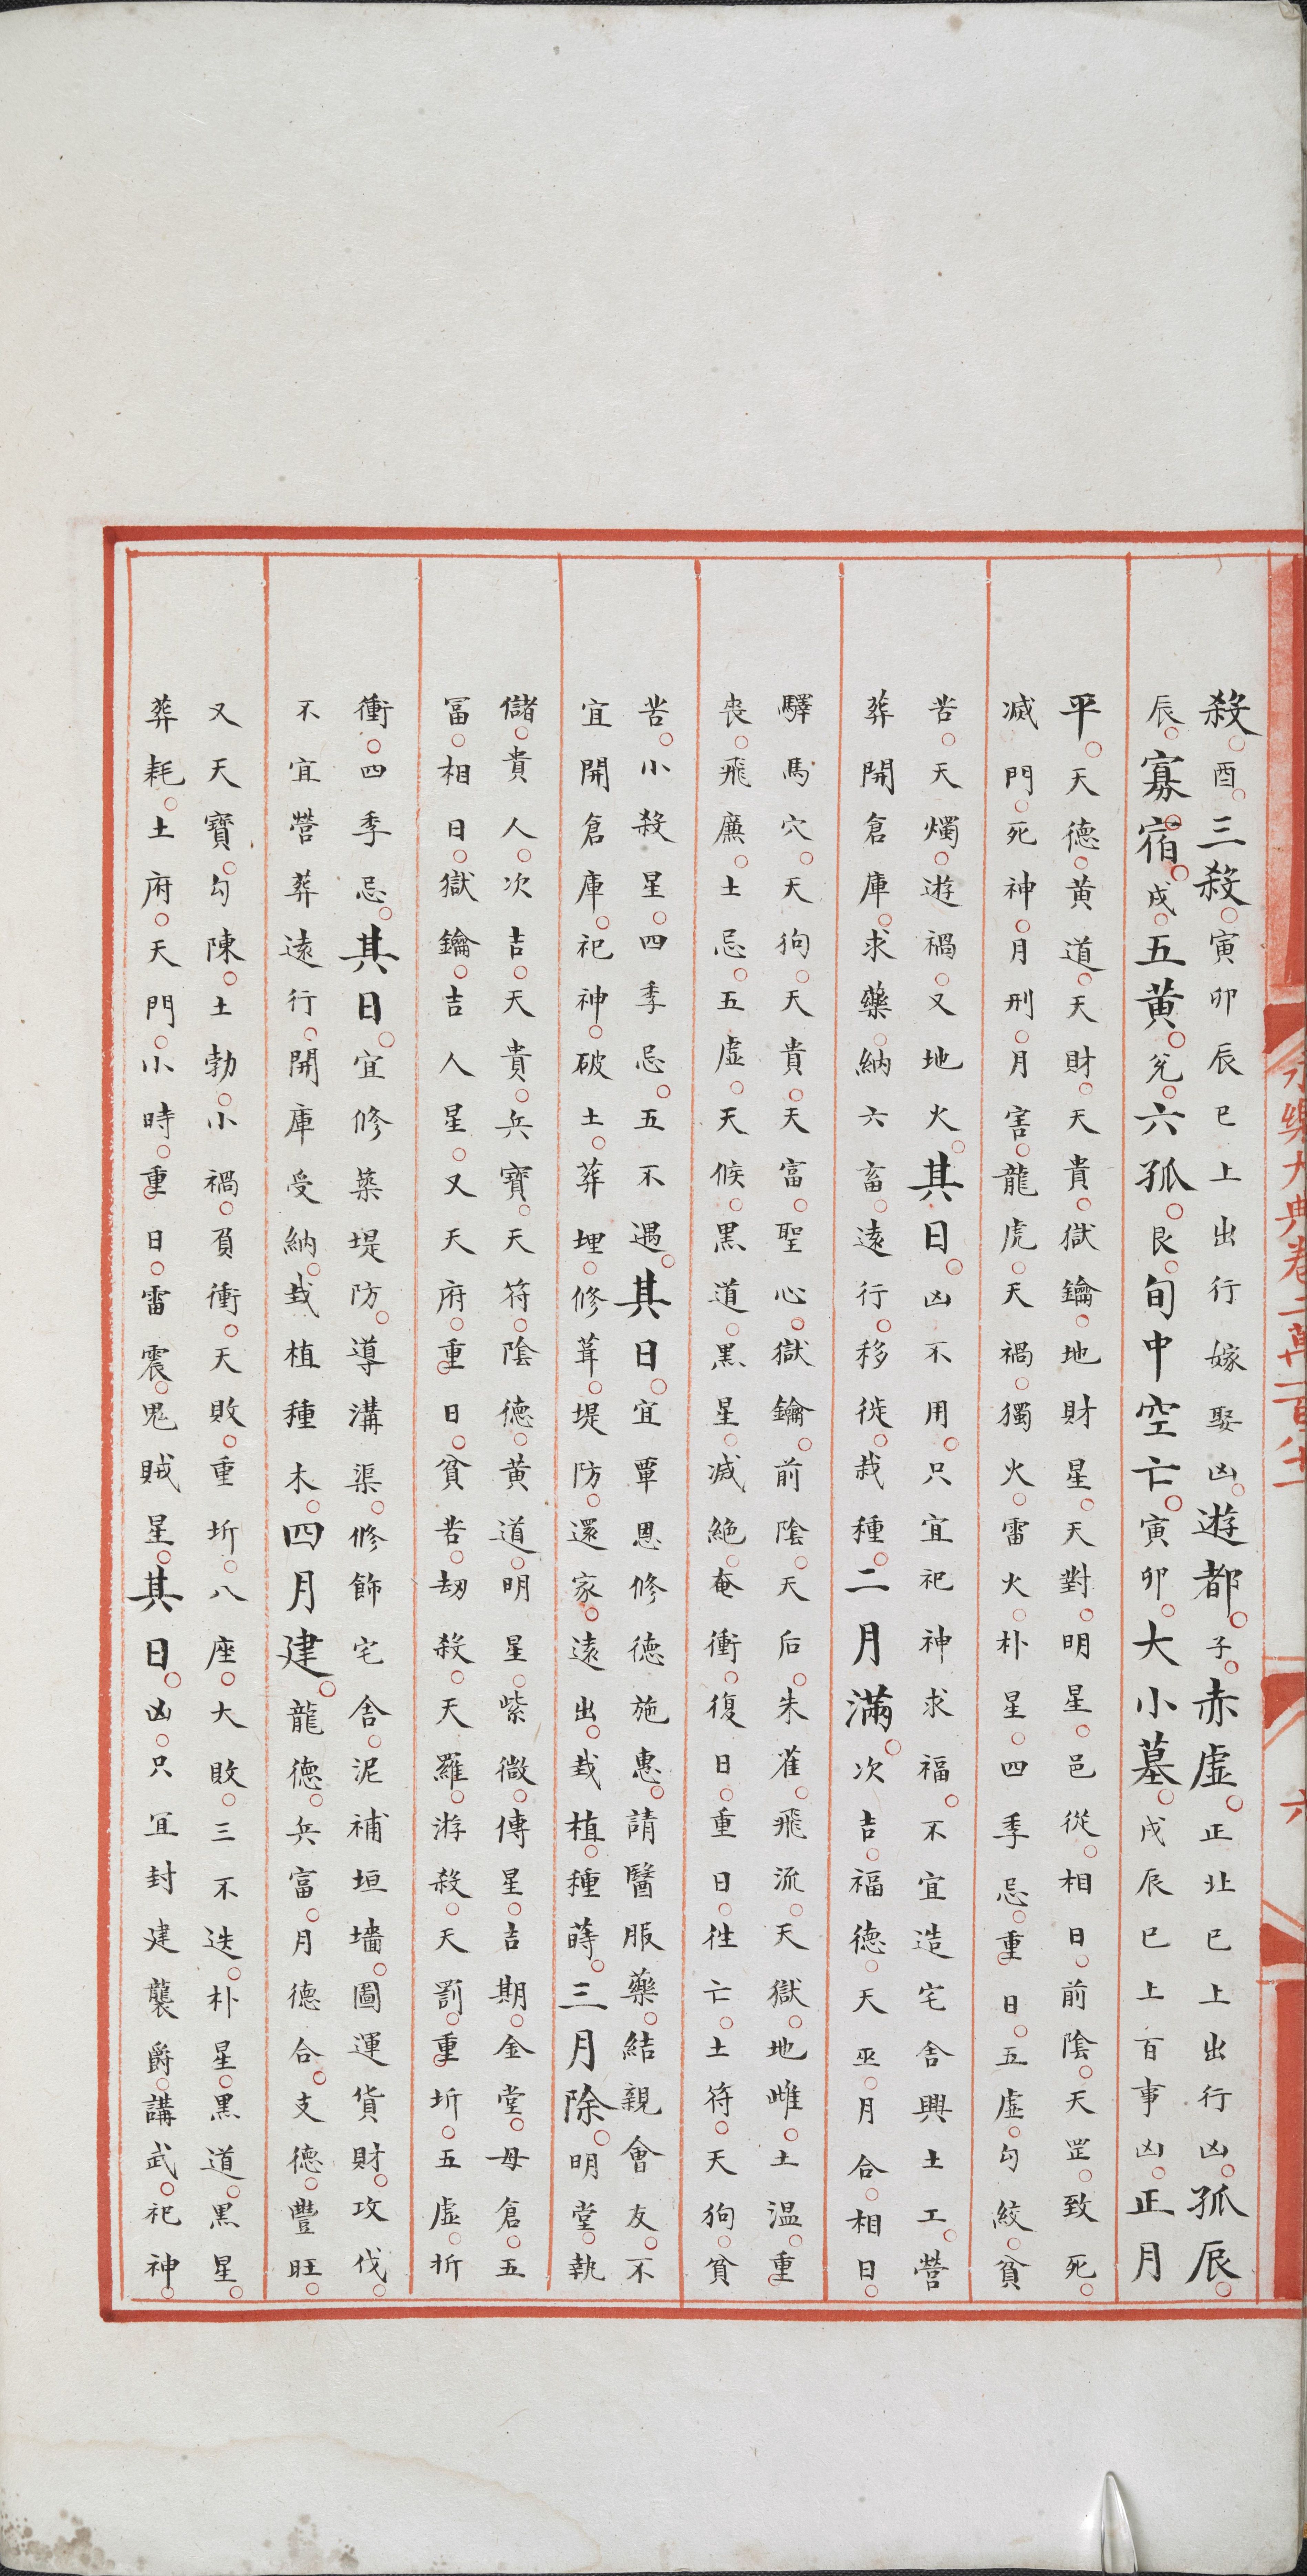 殺酉三殺寅卯辰巳上出行嫁娶凶遊都子赤虛正北巳上出行凶孤辰
辰寡宿戌五黃兌六孤艮旬中空亡寅卯大小墓戌辰巳上百事凶正月
平天德黃道天財天貴獄鑰地財星天對明星邑從相日前陰天罡致死
滅門死神月刑月害龍虎天禍獨火雷火朴星四季忌重日五虛勾絞貧
苦天燭遊禍又地火其日凶不用只宜祀神求福不宜造宅舍興土工營
葬開倉庫求藥納六畜遠行移徙栽種二月滿次吉福德天巫月合相日
驛馬穴天狗天貴天富聖心獄鑰前陰天后朱雀飛流天獄地雌土温重
喪飛廉土忌五虛天候黑道黑星滅絶奄衝復日重日徃亡土符天狗貧
苦小殺星四季忌五不遇其日宜覃恩修德施惠請醫服藥結親會友不
宜開倉庫祀神破土葬埋修葺堤防還家遠出栽植種蒔三月除明堂執
儲貴人次吉天貴兵寶天符陰德黃道明星紫微傳星吉期金堂母倉五
富相日獄鑰吉人星又天府重日貧苦刼殺天羅游殺天罰重圻五虛折
衝四季忌其日宜修築堤防導溝渠修飾宅舍泥補垣墻圖運貨財攻伐
不宜營葬遠行開庫受納栽植種木四月建龍德兵富月德合支德豐旺
又天寶勾陳土勃小禍負衝天敗重圻八座大敗三不迭朴星黑道黑星
葬耗土府天門小時重日雷震鬼賊星其日凶只宜封建襲爵講武祀神
永樂大典卷二萬一百
六